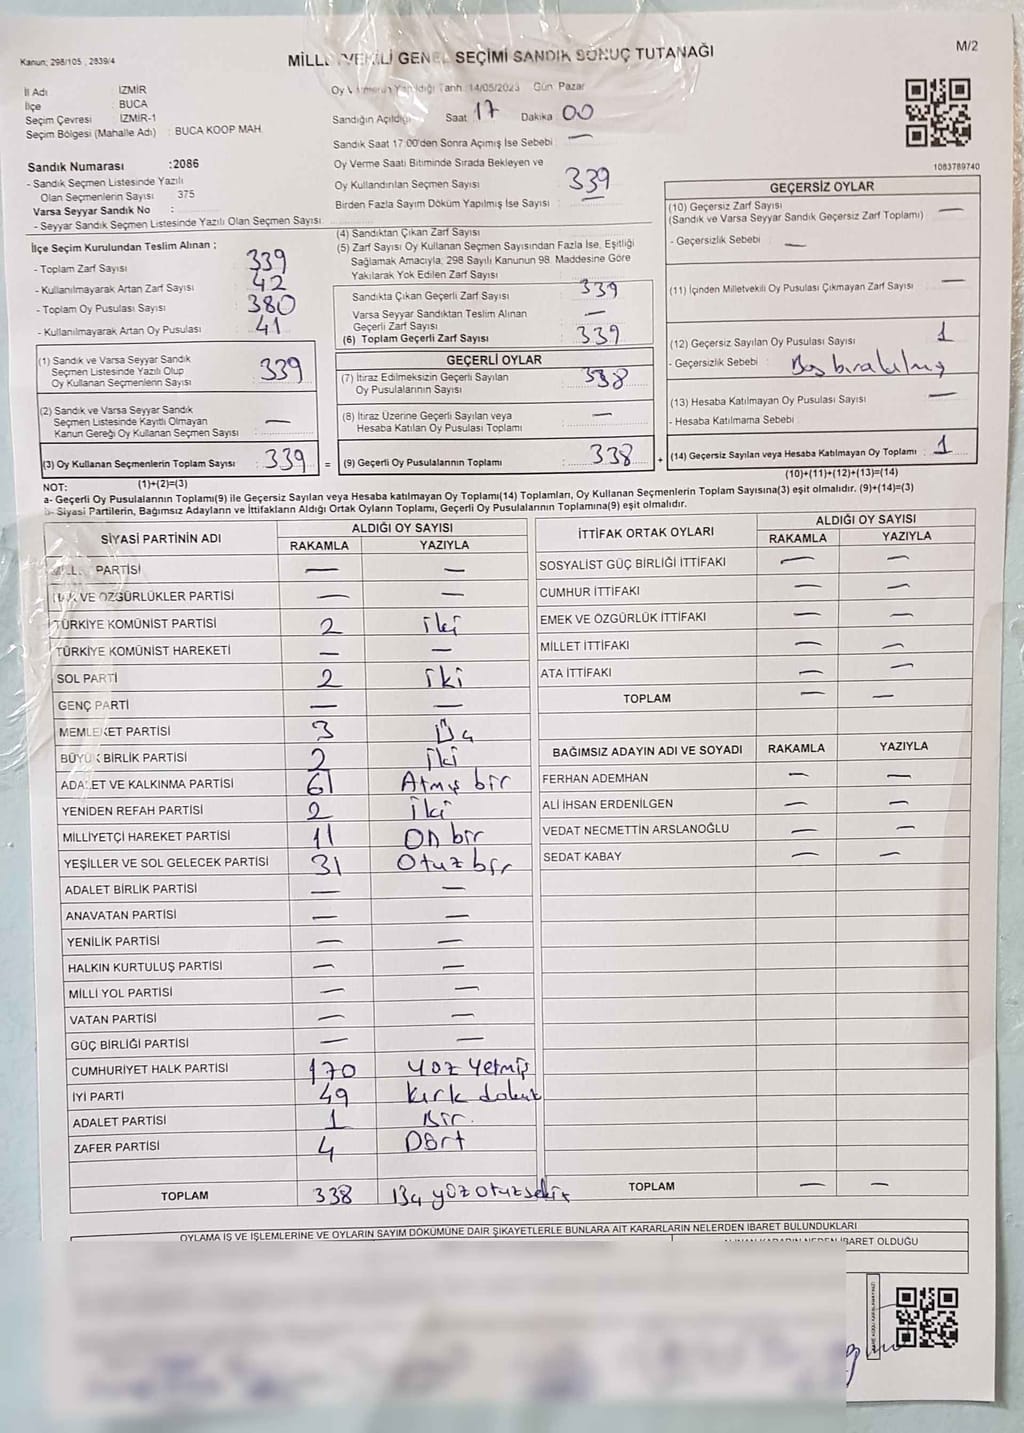 Kanun; 298/105 , 2839/4
SEÇİMİ SANDIK SONUÇ TUTANAĞI
M/2
İl Adı : İZMİR
İlçe : BUCA
Seçim Çevresi : İZMİR-1
Seçim Bölgesi (Mahalle Adı) : BUCA KOOP MAH.
Sandık Numarası :2086
- Sandık Seçmen Listesinde Yazılı
Olan Seçmenlerin Sayısı 375
Varsa Seyyar Sandık No :
- Seyyar Sandık Seçmen Listesinde Yazılı Olan Seçmen Sayısı:
14/05/2023 Gün: Pazar
Sandığın Açıldığı Saat 17 Dakika 00
Sandık Saat 17:00'den Sonra Açımış İse Sebebi : —
Oy Verme Saati Bitiminde Sırada Bekleyen ve
Oy Kullandırılan Seçmen Sayısı 339
Birden Fazla Sayım Döküm Yapılmış İse Sayısı :
1083789740
İlçe Seçim Kurulundan Teslim Alınan ;
- Toplam Zarf Sayısı : 339
- Kullanılmayarak Artan Zarf Sayısı : 42
- Toplam Oy Pusulası Sayısı : 380
- Kullanılmayarak Artan Oy Pusulası : 41
(1) Sandık ve Varsa Seyyar Sandık
Seçmen Listesinde Yazılı Olup
Oy Kullanan Seçmenlerin Sayısı : 339
(2) Sandık ve Varsa Seyyar Sandık
Seçmen Listesinde Kayıtlı Olmayan
Kanun Gereği Oy Kullanan Seçmen Sayısı : —
(3) Oy Kullanan Seçmenlerin Toplam Sayısı : 339 =
(1)+(2)=(3)
(4) Sandıktan Çıkan Zarf Sayısı :
(5) Zarf Sayısı Oy Kullanan Seçmen Sayısından Fazla İse, Eşitliği
Sağlamak Amacıyla, 298 Sayılı Kanunun 98. Maddesine Göre
Yakılarak Yok Edilen Zarf Sayısı :
Sandıkta Çıkan Geçerli Zarf Sayısı : 339
Varsa Seyyar Sandıktan Teslim Alınan
Geçerli Zarf Sayısı : —
(6) Toplam Geçerli Zarf Sayısı : 339
GEÇERLİ OYLAR
(7) İtiraz Edilmeksizin Geçerli Sayılan
Oy Pusulalarının Sayısı : 338
(8) İtiraz Üzerine Geçerli Sayılan veya
Hesaba Katılan Oy Pusulası Toplamı : —
(9) Geçerli Oy Pusulalarının Toplamı : 338 +
GEÇERSİZ OYLAR
(10) Geçersiz Zarf Sayısı : —
(Sandık ve Varsa Seyyar Sandık Geçersiz Zarf Toplamı)
- Geçersizlik Sebebi : —
(11) İçinden Milletvekili Oy Pusulası Çıkmayan Zarf Sayısı : —
(12) Geçersiz Sayılan Oy Pusulası Sayısı : 1
- Geçersizlik Sebebi : Boş bırakılmış
(13) Hesaba Katılmayan Oy Pusulası Sayısı : —
- Hesaba Katılmama Sebebi :
(14) Geçersiz Sayılan veya Hesaba Katılmayan Oy Toplamı : 1
(10)+(11)+(12)+(13)=(14)
NOT:
a- Geçerli Oy Pusulalarının Toplamı(9) ile Geçersiz Sayılan veya Hesaba katılmayan Oy Toplamı(14) Toplamları, Oy Kullanan Seçmenlerin Toplam Sayısına(3) eşit olmalıdır. (9)+(14)=(3)
b- Siyasi Partilerin, Bağımsız Adayların ve İttifakların Aldığı Ortak Oyların Toplamı, Geçerli Oy Pusulalarının Toplamına(9) eşit olmalıdır.
SİYASİ PARTİNİN ADI ALDIĞI OY SAYISI
RAKAMLA YAZIYLA
PARTİSİ — —
VE ÖZGÜRLÜKLER PARTİSİ — —
TÜRKİYE KOMÜNİST PARTİSİ 2 iki
TÜRKİYE KOMÜNİST HAREKETİ — —
SOL PARTİ 2 iki
GENÇ PARTİ — —
MEMLEKET PARTİSİ 3 Üç
BÜYÜK BİRLİK PARTİSİ 2 iki
ADALET VE KALKINMA PARTİSİ 61 Atmış bir
YENİDEN REFAH PARTİSİ 2 iki
MİLLİYETÇİ HAREKET PARTİSİ 11 On bir
YEŞİLLER VE SOL GELECEK PARTİSİ 31 Otuz bir
ADALET BİRLİK PARTİSİ — —
ANAVATAN PARTİSİ — —
YENİLİK PARTİSİ — —
HALKIN KURTULUŞ PARTİSİ — —
MİLLİ YOL PARTİSİ — —
VATAN PARTİSİ — —
GÜÇ BİRLİĞİ PARTİSİ — —
CUMHURİYET HALK PARTİSİ 170 yüz yetmiş
İYİ PARTİ 49 kırk dokuz
ADALET PARTİSİ 1 Bir.
ZAFER PARTİSİ 4 Dört
TOPLAM 338 üç yüz otuz sekiz
İTTİFAK ORTAK OYLARI ALDIĞI OY SAYISI
RAKAMLA YAZIYLA
SOSYALİST GÜÇ BİRLİĞİ İTTİFAKI — —
CUMHUR İTTİFAKI — —
EMEK VE ÖZGÜRLÜK İTTİFAKI — —
MİLLET İTTİFAKI — —
ATA İTTİFAKI — —
TOPLAM — —
BAĞIMSIZ ADAYIN ADI VE SOYADI RAKAMLA YAZIYLA
FERHAN ADEMHAN — —
ALİ İHSAN ERDENİLGEN — —
VEDAT NECMETTİN ARSLANOĞLU — —
SEDAT KABAY — —
TOPLAM — —
OYLAMA İŞ VE İŞLEMLERİNE VE OYLARIN SAYIM DÖKÜMÜNE DAİR ŞİKAYETLERLE BUNLARA AİT KARARLARIN NELERDEN İBARET BULUNDUKLARI
İBARET OLDUĞU